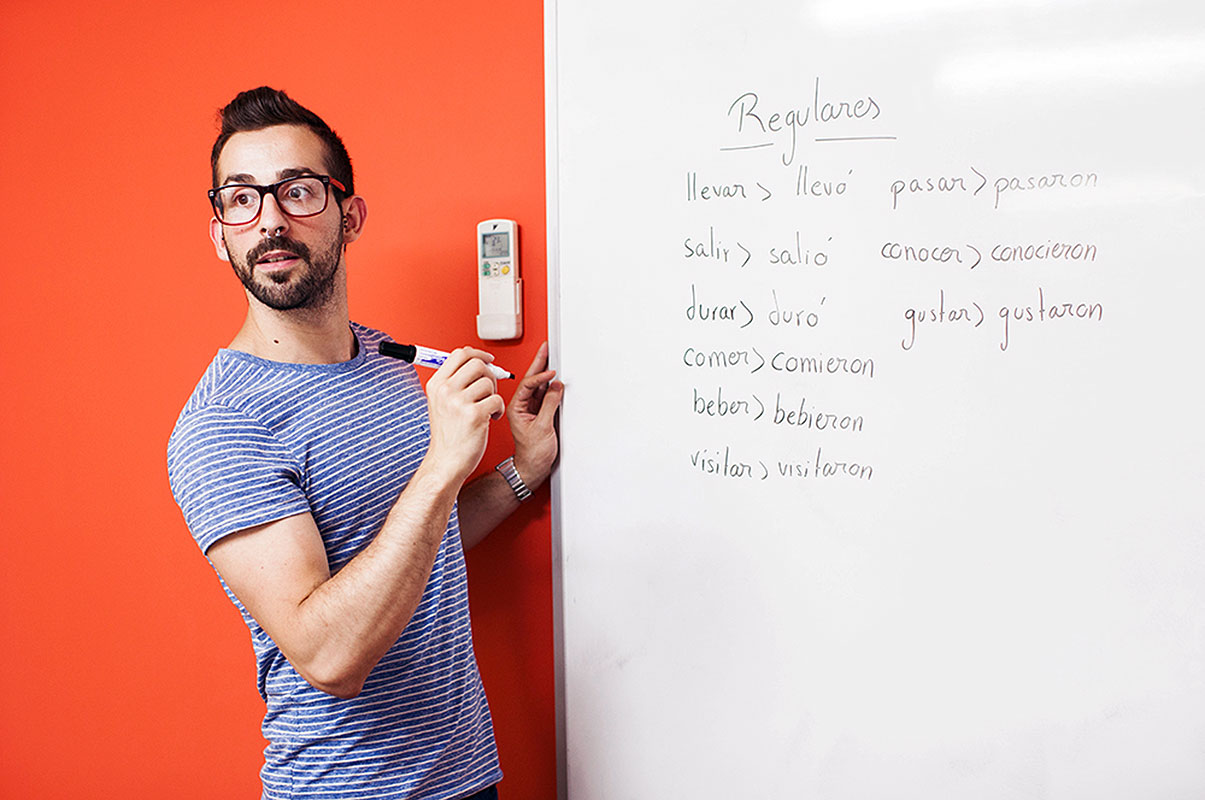 Regulares
llevar > llevó pasar > pasaron
salir > salió conocer > conocieron
durar > duró gustar > gustaron
comer > comieron
beber > bebieron
visitar > visitaron